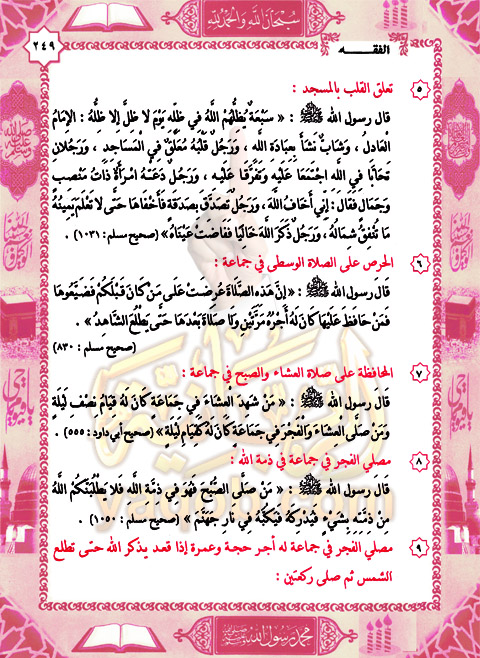 سبحان الله والحمد لله
الفقه
٢٤٩
٥ تعلق القلب بالمسجد :
قال رسول الله ﷺ : « سَبْعَةٌ يُظِلُّهُمُ اللَّهُ فِي ظِلِّهِ يَوْمَ لَا ظِلَّ إِلَّا ظِلُّهُ : الإِمَامُ
العَادِلُ ، وَشَابٌّ نَشَأَ بِعِبَادَةِ اللَّهِ ، وَرَجُلٌ قَلْبُهُ مُعَلَّقٌ فِي الْمَسَاجِدِ ، وَرَجُلَانِ
تَحَابَّا فِي اللَّهِ اجْتَمَعَا عَلَيْهِ وَتَفَرَّقَا عَلَيْهِ ، وَرَجُلٌ دَعَتْهُ امْرَأَةٌ ذَاتُ مَنْصِبٍ
وَجَمَالٍ فَقَالَ : إِنِّي أَخَافُ اللَّهَ ، وَرَجُلٌ تَصَدَّقَ بِصَدَقَةٍ فَأَخْفَاهَا حَتَّى لَا تَعْلَمَ يَمِينُهُ
مَا تُنْفِقُ شِمَالُهُ ، وَرَجُلٌ ذَكَرَ اللَّهَ خَالِيًا فَفَاضَتْ عَيْنَاهُ» (صحيح مسلم : ١٠٣١) .
٦ الحرص على الصلاة الوسطى في جماعة :
قال رسول الله ﷺ : « إِنَّ هَذِهِ الصَّلَاةَ عُرِضَتْ عَلَى مَنْ كَانَ قَبْلَكُمْ فَضَيَّعُوهَا
فَمَنْ حَافَظَ عَلَيْهَا كَانَ لَهُ أَجْرُهُ مَرَّتَيْنِ وَلَا صَلَاةَ بَعْدَهَا حَتَّى يَطْلُعَ الشَّاهِدُ » .
(صحيح مسلم : ٨٣٠)
٧ المحافظة على صلاة العشاء والصبح في جماعة :
قال رسول الله ﷺ : « مَنْ شَهِدَ العِشَاءَ فِي جَمَاعَةٍ كَانَ لَهُ قِيَامُ نِصْفِ لَيْلَةٍ
وَمَنْ صَلَّى العِشَاءَ وَالْفَجْرَ فِي جَمَاعَةٍ كَانَ لَهُ كَقِيَامِ لَيْلَةٍ » (صحيح أبي داود : ٥٥٥) .
٨ مصلي الفجر في جماعة في ذمة الله :
قال رسول الله ﷺ : « مَنْ صَلَّى الصُّبْحَ فَهُوَ فِي ذِمَّةِ اللَّهِ فَلَا يَطْلُبَنَّكُمُ اللَّهُ
مِنْ ذِمَّتِهِ بِشَيْءٍ فَيُدْرِكَهُ فَيَكُبَّهُ فِي نَارِ جَهَنَّمَ » (صحيح مسلم : ١٠٥٠) .
٩ مصلي الفجر في جماعة له أجر حجة وعمرة إذا قعد يذكر الله حتى تطلع
الشمس ثم صلى ركعتين :
محمد رسول الله ﷺ